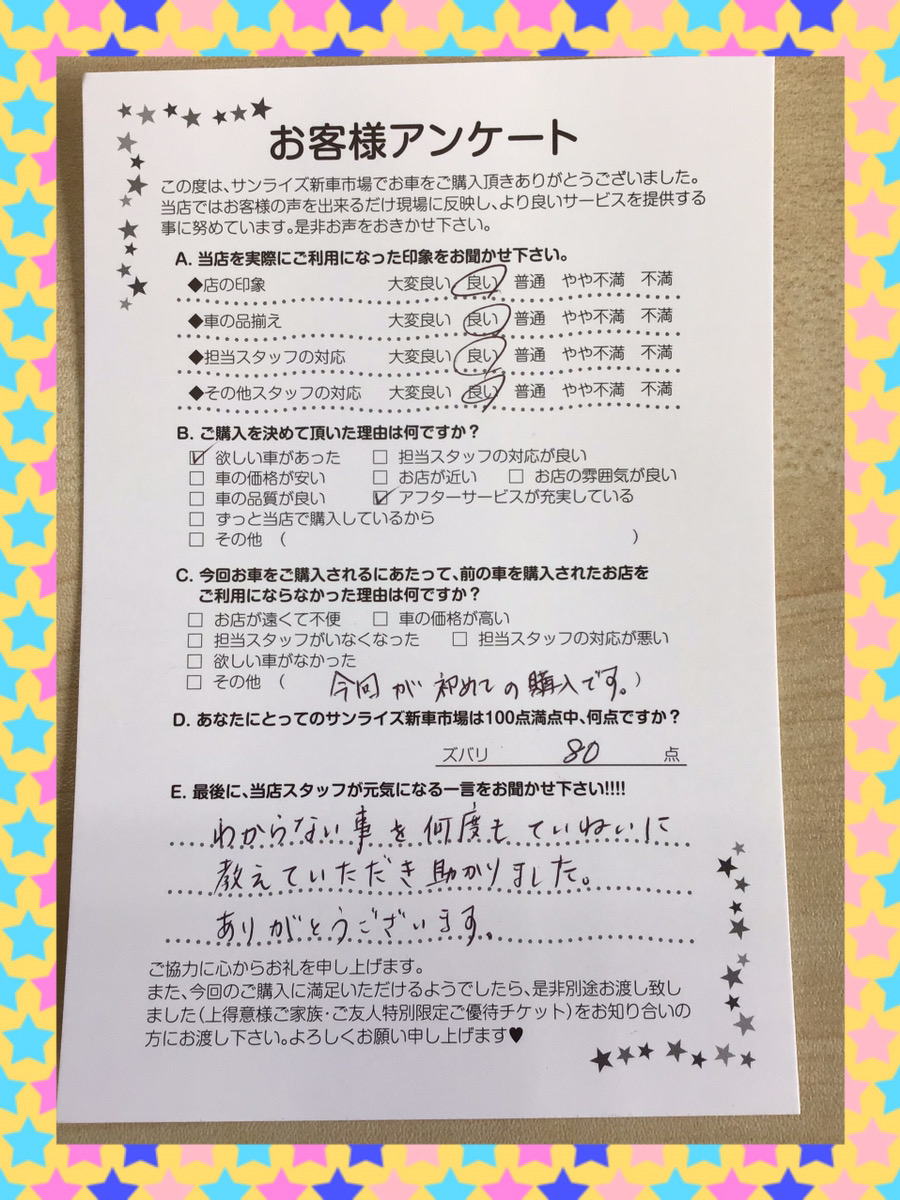 お客様アンケート
この度は、サンライズ新車市場でお車をご購入頂きありがとうございました。
当店ではお客様の声を出来るだけ現場に反映し、より良いサービスを提供する
事に努めています。是非お声をおきかせ下さい。
A. 当店を実際にご利用になった印象をお聞かせ下さい。
◆店の印象 大変良い 良い 普通 やや不満 不満
◆車の品揃え 大変良い 良い 普通 やや不満 不満
◆担当スタッフの対応 大変良い 良い 普通 やや不満 不満
◆その他スタッフの対応 大変良い 良い 普通 やや不満 不満
B. ご購入を決めて頂いた理由は何ですか？
☑ 欲しい車があった □ 担当スタッフの対応が良い
□ 車の価格が安い □ お店が近い □ お店の雰囲気が良い
□ 車の品質が良い ☑ アフターサービスが充実している
□ ずっと当店で購入しているから
□ その他 （ ）
C. 今回お車をご購入されるにあたって、前の車を購入されたお店を
ご利用にならなかった理由は何ですか？
□ お店が遠くて不便 □ 車の価格が高い
□ 担当スタッフがいなくなった □ 担当スタッフの対応が悪い
□ 欲しい車がなかった
□ その他 （ 今回が初めての購入です。）
D. あなたにとってのサンライズ新車市場は100点満点中、何点ですか？
ズバリ 80 点
E. 最後に、当店スタッフが元気になる一言をお聞かせ下さい!!!!
わからない事を何度もていねいに
教えていただき助かりました。
ありがとうございます。
ご協力に心からお礼を申し上げます。
また、今回のご購入に満足いただけるようでしたら、是非別途お渡し致し
ました（上得意様ご家族・ご友人特別限定ご優待チケット）をお知り合いの
方にお渡し下さい。よろしくお願い申し上げます♥